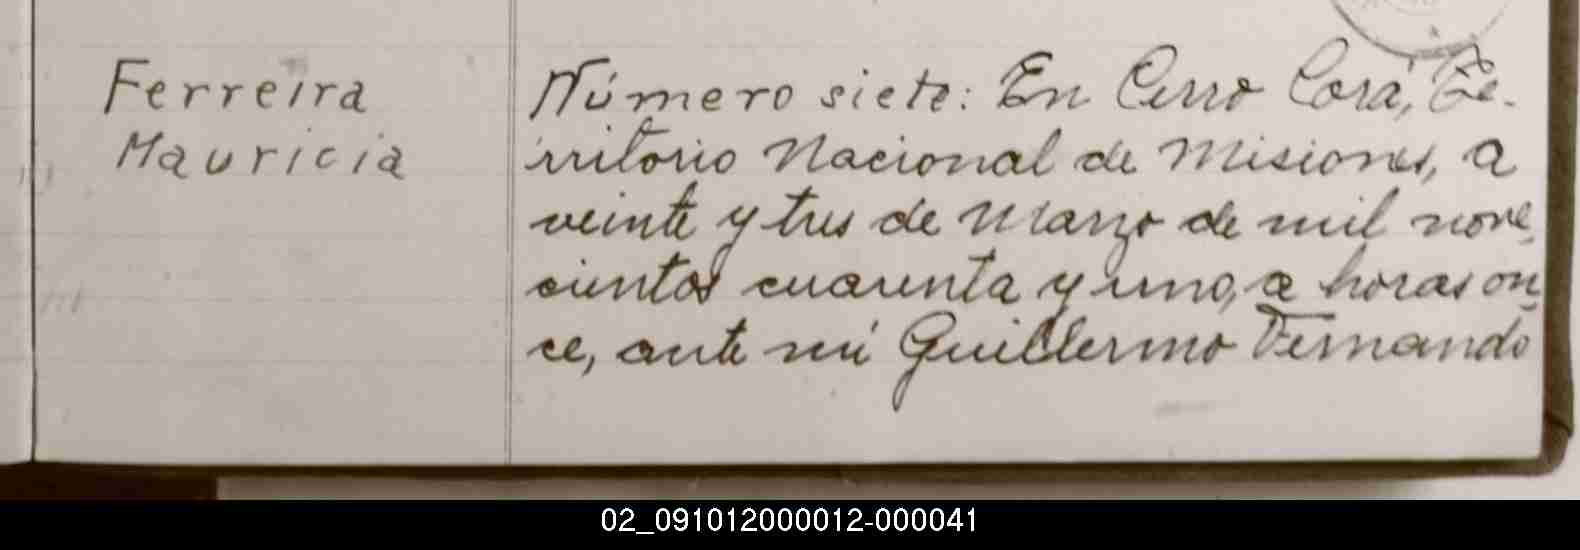 Ferreira
Mauricia
Número siete: En Cerro Corá, Te-
rritorio Nacional de Misiones, a
veinte y tres de Marzo de mil nove-
cientos cuarenta y uno, a horas on-
ce, ante mí Guillermo Fernando
02_091012000012-000041